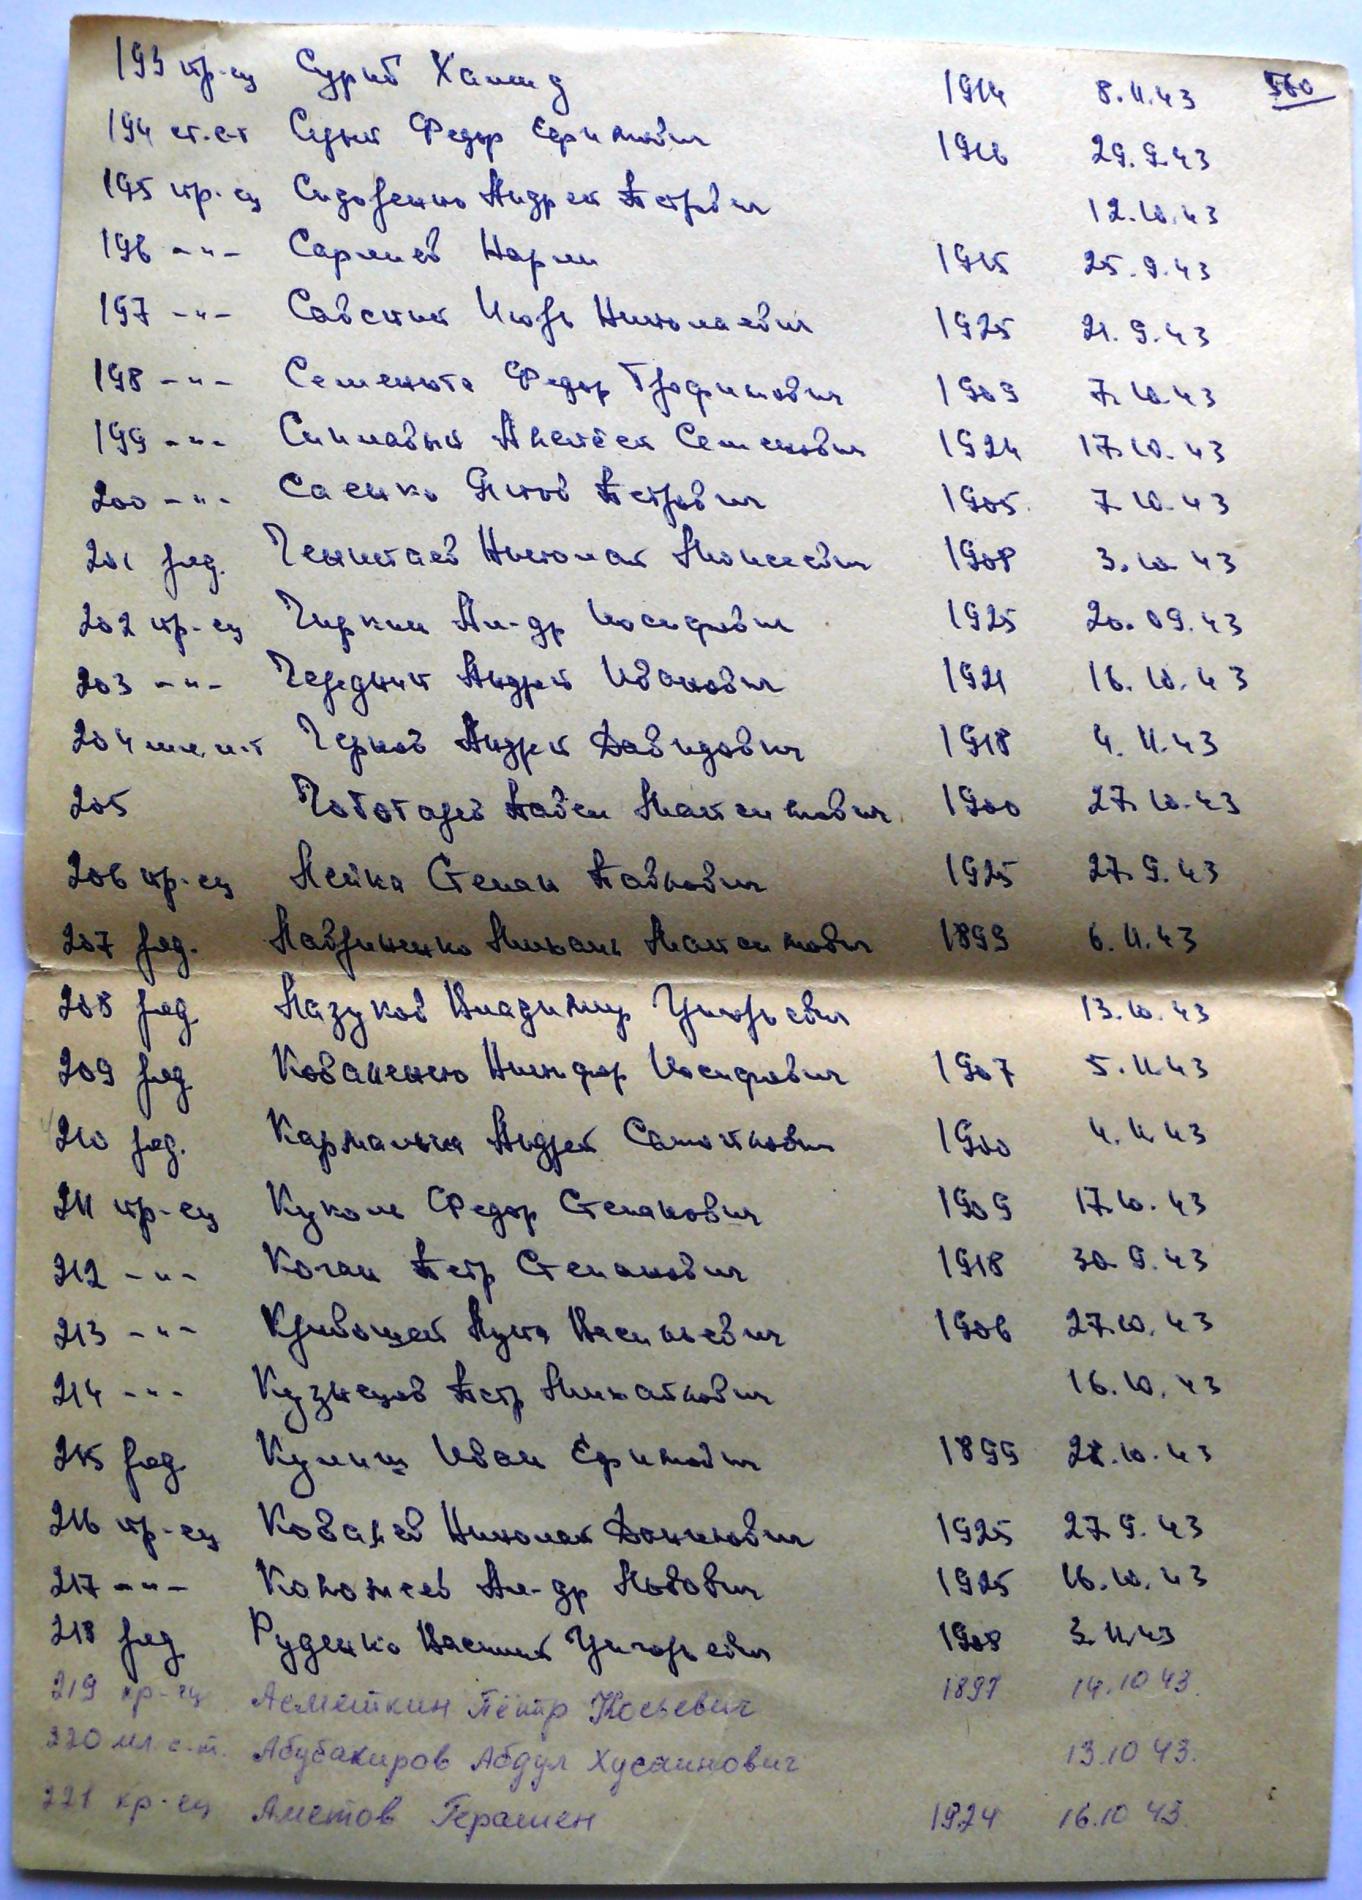 193 кр-ец Сурит Хамид 1914 8.11.43 560
194 ст. с-т Федор Ефимович 1916 29.9.43
195 кр-ец Сидоренко Андрей Петрович 12.10.43
196 -"- Сармиев Нарли 1915 25.9.43
197 -"- Савский Игорь Николаевич 1925 21.9.43
198 -"- Семенюта Федор Трофимович 1909 7.10.43
199 -"- Алексей Семенович 1924 17.10.43
200 -"- Саенко Яков Петрович 1905 7.10.43
201 ряд. Николай Моисеевич 1908 3.10.43
202 кр-ец Чиркин Ал-др Иосифович 1925 20.09.43
203 -"- Чередник Андрей Иванович 1921 16.10.43
204 мл. л-т Чернов Андрей Давидович 1918 4.11.43
205 Чоботарев Павел Максимович 1900 27.10.43
206 кр-ец Лейка Степан Павлович 1925 27.9.43
207 ряд. Лавриненко Михаил Максимович 1899 6.11.43
208 ряд Лазуков Владимир Григорьевич 13.10.43
209 ряд Коваленко Никифор Иосифович 1907 5.11.43
210 ряд. Кармалыга Андрей Самойлович 1900 4.11.43
211 кр-ец Куколь Федор Степанович 1909 17.10.43
212 -"- Коган Петр Степанович 1918 30.9.43
213 -"- Кривошей Лука Васильевич 1906 27.10.43
214 -"- Кузнецов Петр Михайлович 16.10.43
215 ряд Кулиш Иван Ефимович 1899 28.10.43
216 кр-ец Ковалев Николай Данилович 1925 27.9.43
217 -"- Ал-др Львович 1925 16.10.43
218 ряд Руденко Василий Григорьевич 1908 3.11.43
219 кр-ец Асмешкин Пётр 1897 14.10 43.
220 мл. с-т. Абубакиров Абдул Хусаинович 13.10 43.
221 кр-ец Аметов Герамен 1924 16.10 43.